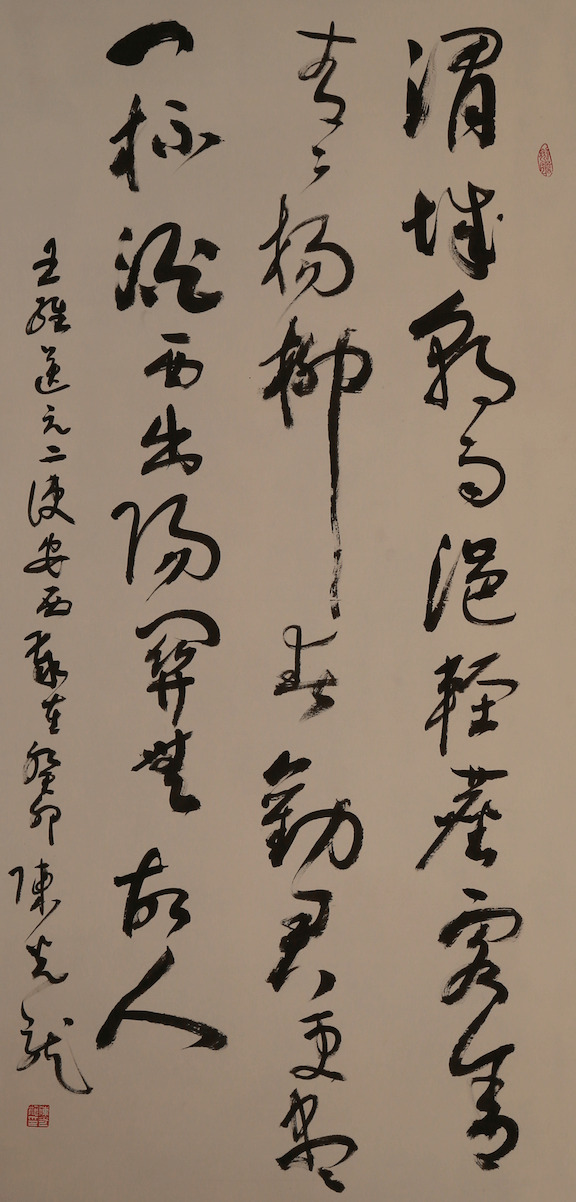 渭城朝雨浥輕塵客舍
青々楊柳春勸君更盡
一杯酒西出陽關無故人
王維送元二使安西歲在癸卯陳光龍